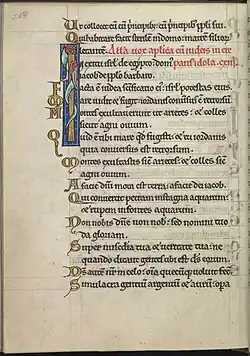 Ut collocet eū cū pncipib; cū pncipib; ppli sui.
Qui habitare facit sterilē in domo: matrē filior
letantē. Alla vox aplica cū iudeis
exitu isrl de egypto: dom'
iacob de pplo barbaro.
Facta ē iudea scificatio ei': isrl potestas eius.
Mare uidit et fugit: iordanis conuersus ē retrorsū.
Montes exultauerunt ut arietes: et colles
sicut agni ouium.
Quid ē tibi mare qd fugisti: et tu iordanis
quia conuersus est retrorsum.
Montes exultastis sic arietes: et colles sic
agni ouium.
A facie dni mota est terra: a facie dei iacob.
Qui conuertit petram in stagna aquarum:
et rupem in fontes aquarum.
Non nobis dne non nob': sed nomini tuo
da gloriam.
Super misedia tua et ueritate tua: ne
quando dicant gentes ubi est ds eorum.
Ds aute nr in celo: oia quecūq; uoluit fec̄.
Simulacra gentiū argentū et aurū: opa